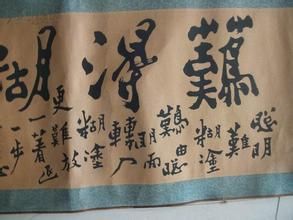 難得糊
聰明
難
糊塗
難由聰
明而
轉入
糊塗
更難放
一著退
一步